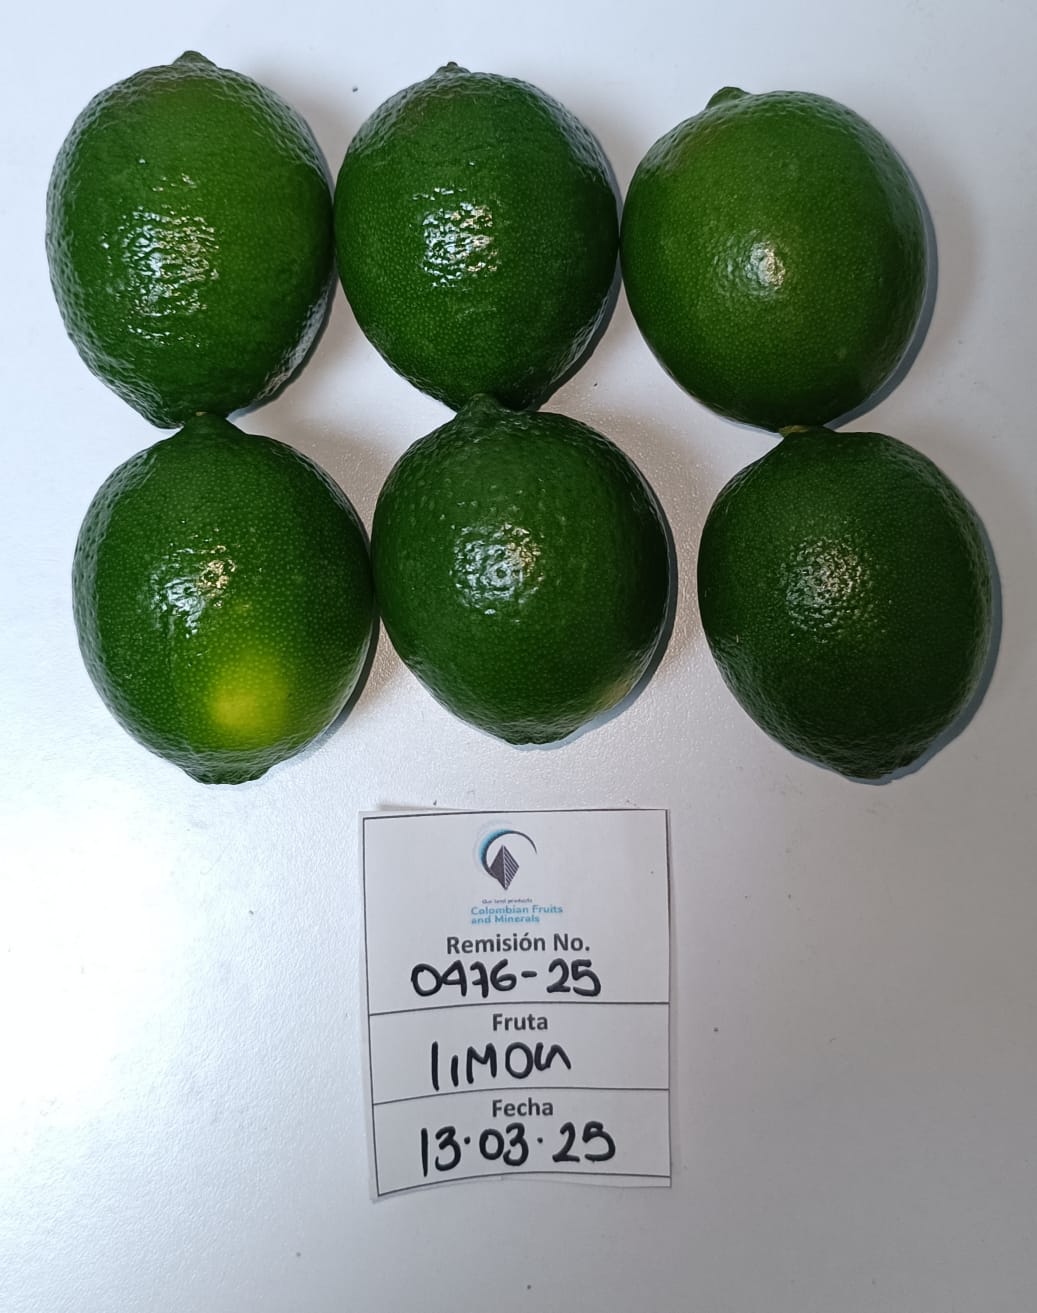 Our land products
Colombian Fruits
and Minerals
Remisión No.
0476-25
Fruta
lIMON
Fecha
13·03·25